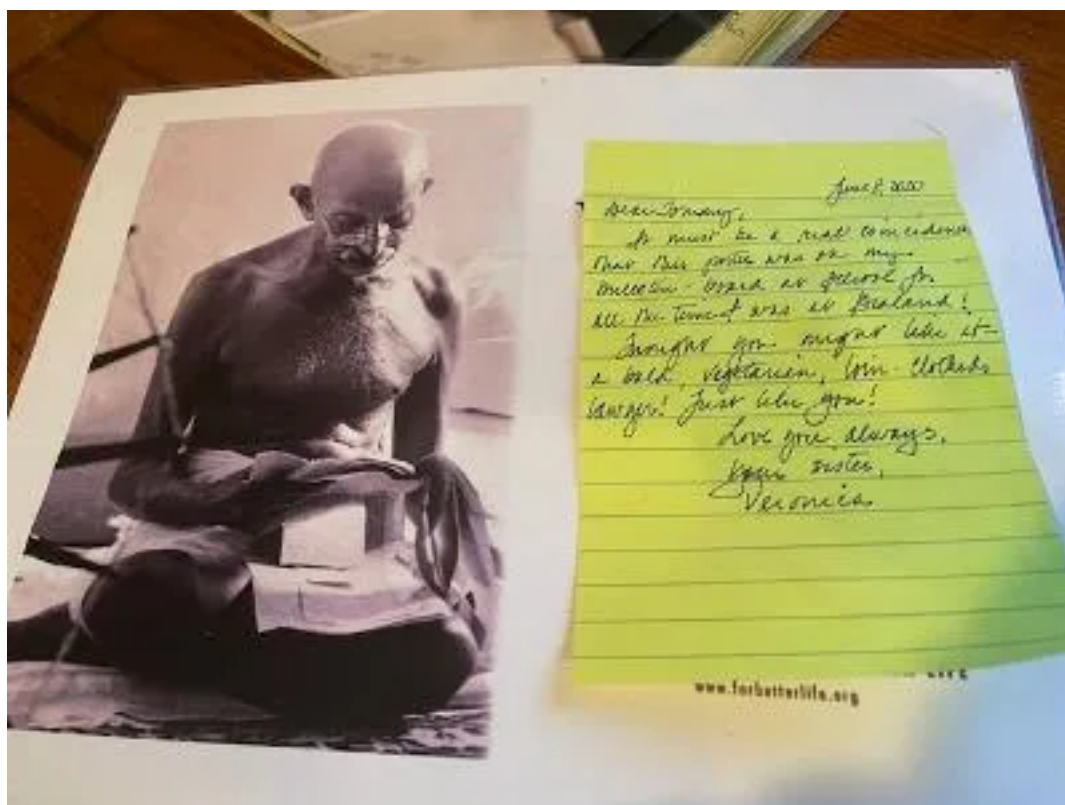 June 8, 2020
Dear Tommy,
It must be a real coincidence
that this poster was on my
bulletin-board at school for
all the time I was at
Thought you might like it -
a bald, vegetarian, loin-clothed
lawyer! Just like you!
Love you always,
your sister,
Veronica
LIFE
www.forbetterlife.org